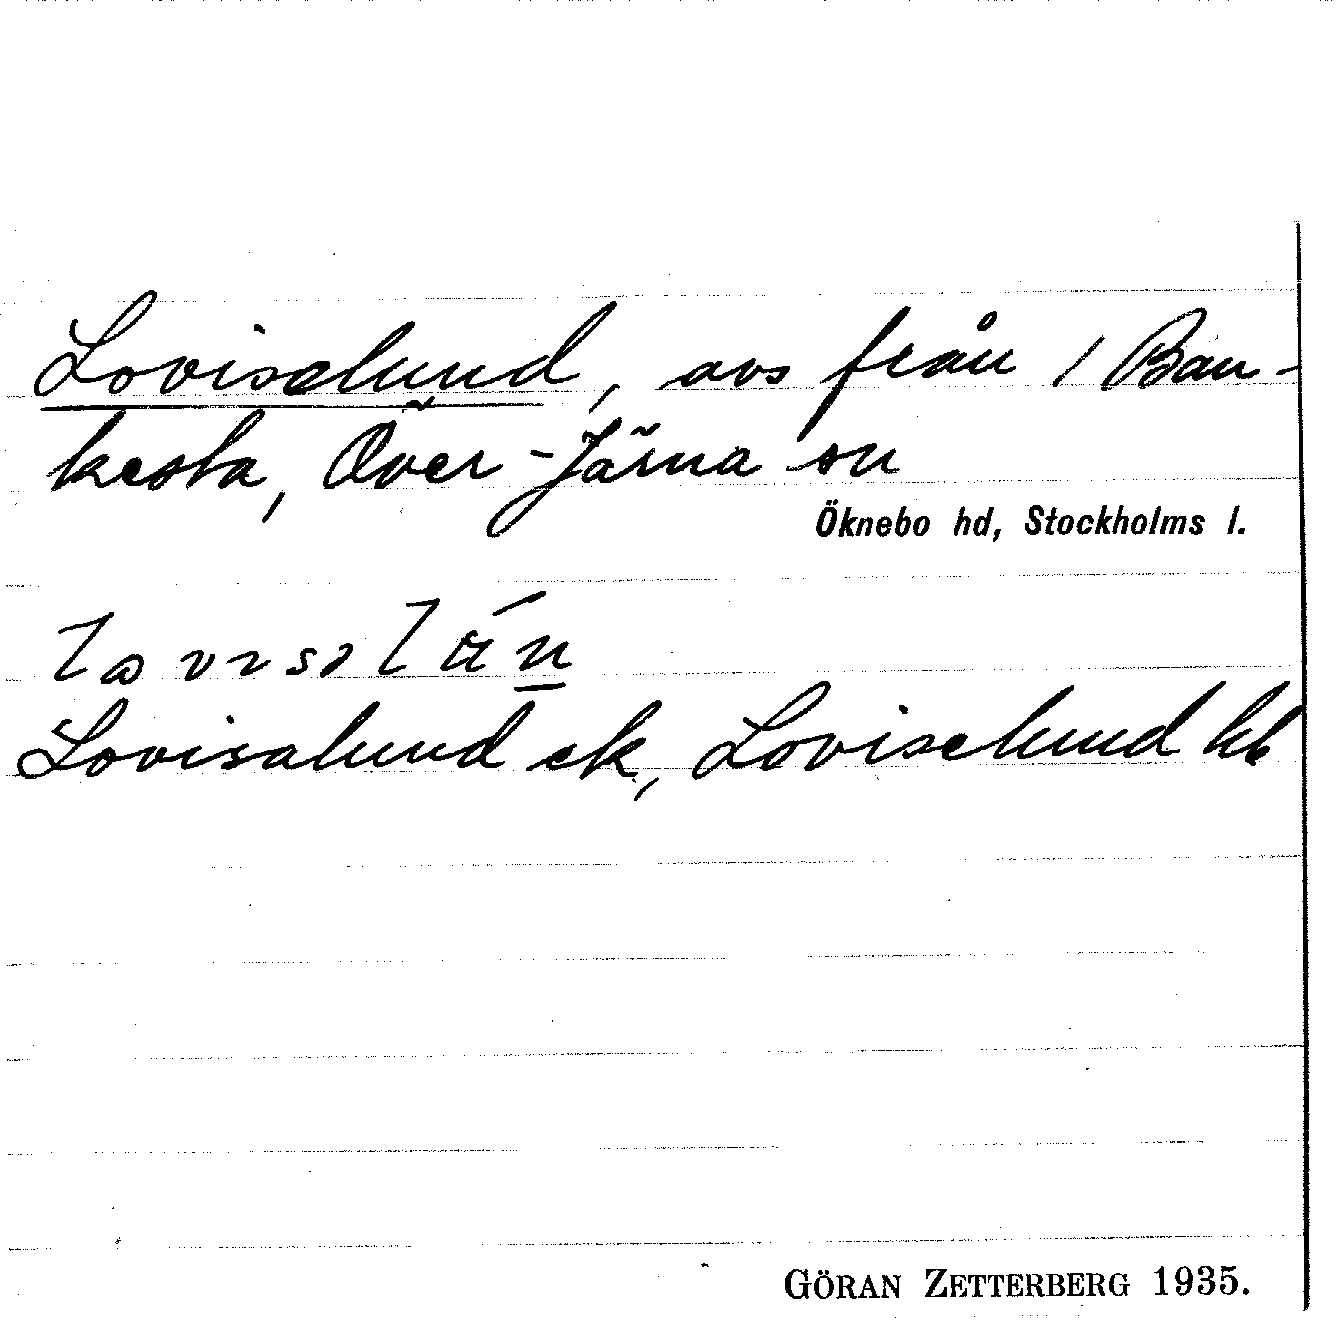 Loviselund, avs från 1 Ban-
kesta, Över-Järna sn
Öknebo hd, Stockholms l.
Lovisalund ek, Loviselund hb
GÖRAN ZETTERBERG 1935.